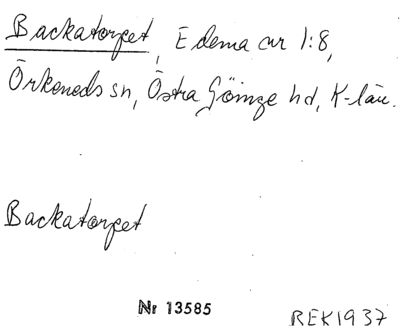 Backatorpet, Edema nr 1:8,
Örkeneds sn, Östra Göinge hd, K-län.
Backatorpet
Nr 13585
REK1937